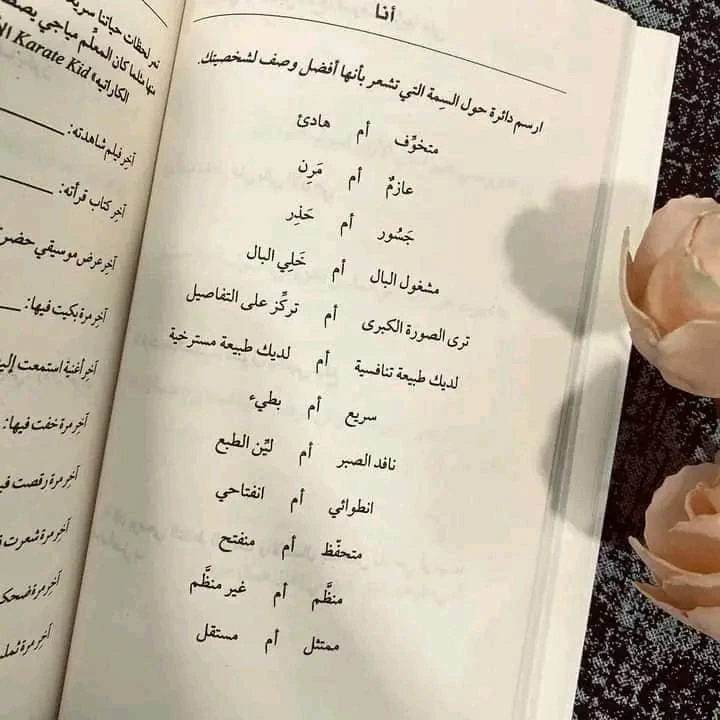 أنا
ارسم دائرة حول السِمة التي تشعر بأنها أفضل وصف لشخصيتك.
متخوِّف أم هادئ
عازمٌ أم مَرِن
جَسُور أم حَذِر
مشغول البال أم خَلِي البال
ترى الصورة الكبرى أم تركِّز على التفاصيل
لديك طبيعة تنافسية أم لديك طبيعة مسترخية
سريع أم بطيء
نافد الصبر أم ليِّن الطبع
انطوائي أم انفتاحي
متحفّظ أم منفتح
منظَّم أم غير منظَّم
ممتثل أم مستقل
تمر لحظات حياتنا سريعً
منها مثلما كان المعلّم مياجي
الكاراتيه» Karate Kid
آخِر فيلم شاهدته:
آخِر كتاب قرأته:
آخِر عرض موسيقي حضرت
آخِر مرة بكيت فيها:
آخِر أغنية استمعت إلي
آخِر مرة خفت فيها:
آخِر مرة رقصت في
آخِر مرة شعرت
آخِر مرة ضحك
آخِر مرة